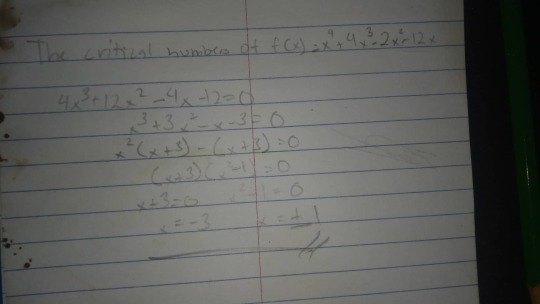 The critical numbers of f(x)=x⁴+4x³-2x²-12x
4x³+12x²-4x-12=0
x³+3x²-x-3=0
x²(x+3)-(x+3)=0
(x+3)(x²-1)=0
x+3=0 x²-1=0
x=-3 x=±1